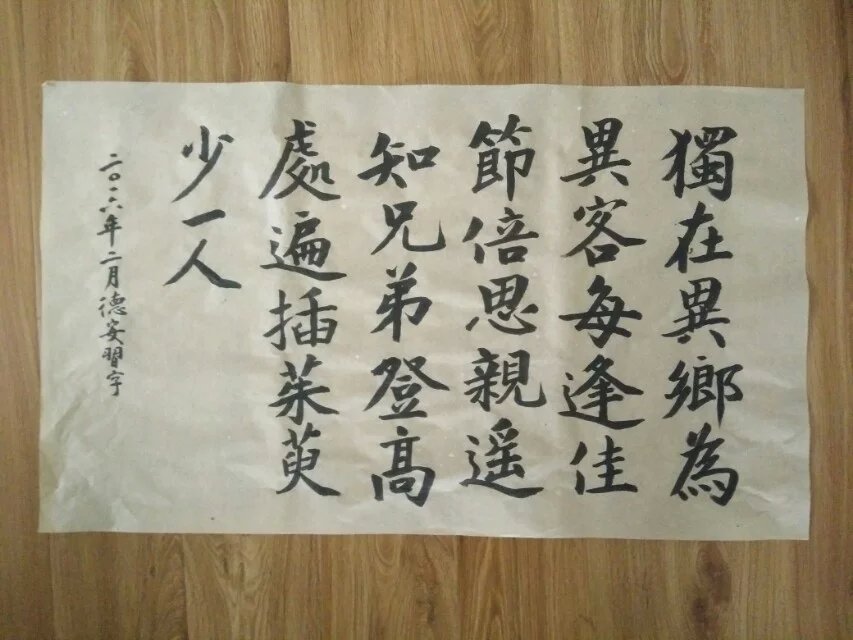 獨在異鄉為
異客每逢佳
節倍思親遥
知兄弟登高
處遍插茱萸
少一人
二〇二六年二月德安習字